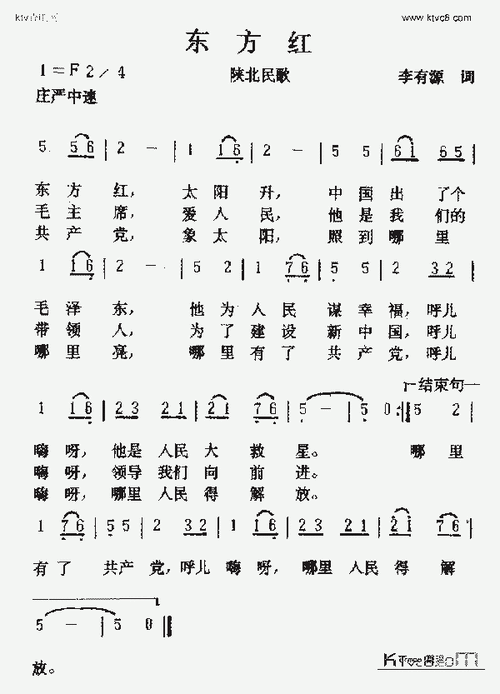 www.ktvc8.com
东方红
1=F 2/4 陕北民歌 李有源 词
庄严中速
5. 5 6 | 2 - | 1 1 6 | 2 - | 5 5 | 6 1 6 5 |
东方红, 太阳升, 中国出了个
毛主席, 爱人民, 他是我们的
共产党, 象太阳, 照到哪里
1 1 6 | 2 - | 5 2 | 1 7 6 | 5 5 | 2 3 2 |
毛泽东, 他为人民谋幸福,呼儿
带领人, 为了建设新中国,呼儿
哪里亮, 哪里有了共产党,呼儿
结束句
1 1 6 | 2 3 2 1 | 2 1 7 6 | 5 - | 5 0 :| 5 2 |
嗨呀,他是人民大救星。 哪里
嗨呀,领导我们向前进。
嗨呀,哪里人民得解放。
1 7 6 | 5 5 | 2 3 2 | 1 1 6 | 2 3 2 1 | 2 1 7 6 |
有了共产党,呼儿嗨呀,哪里人民得解
5 - | 5 - | 5 0 ‖
放。